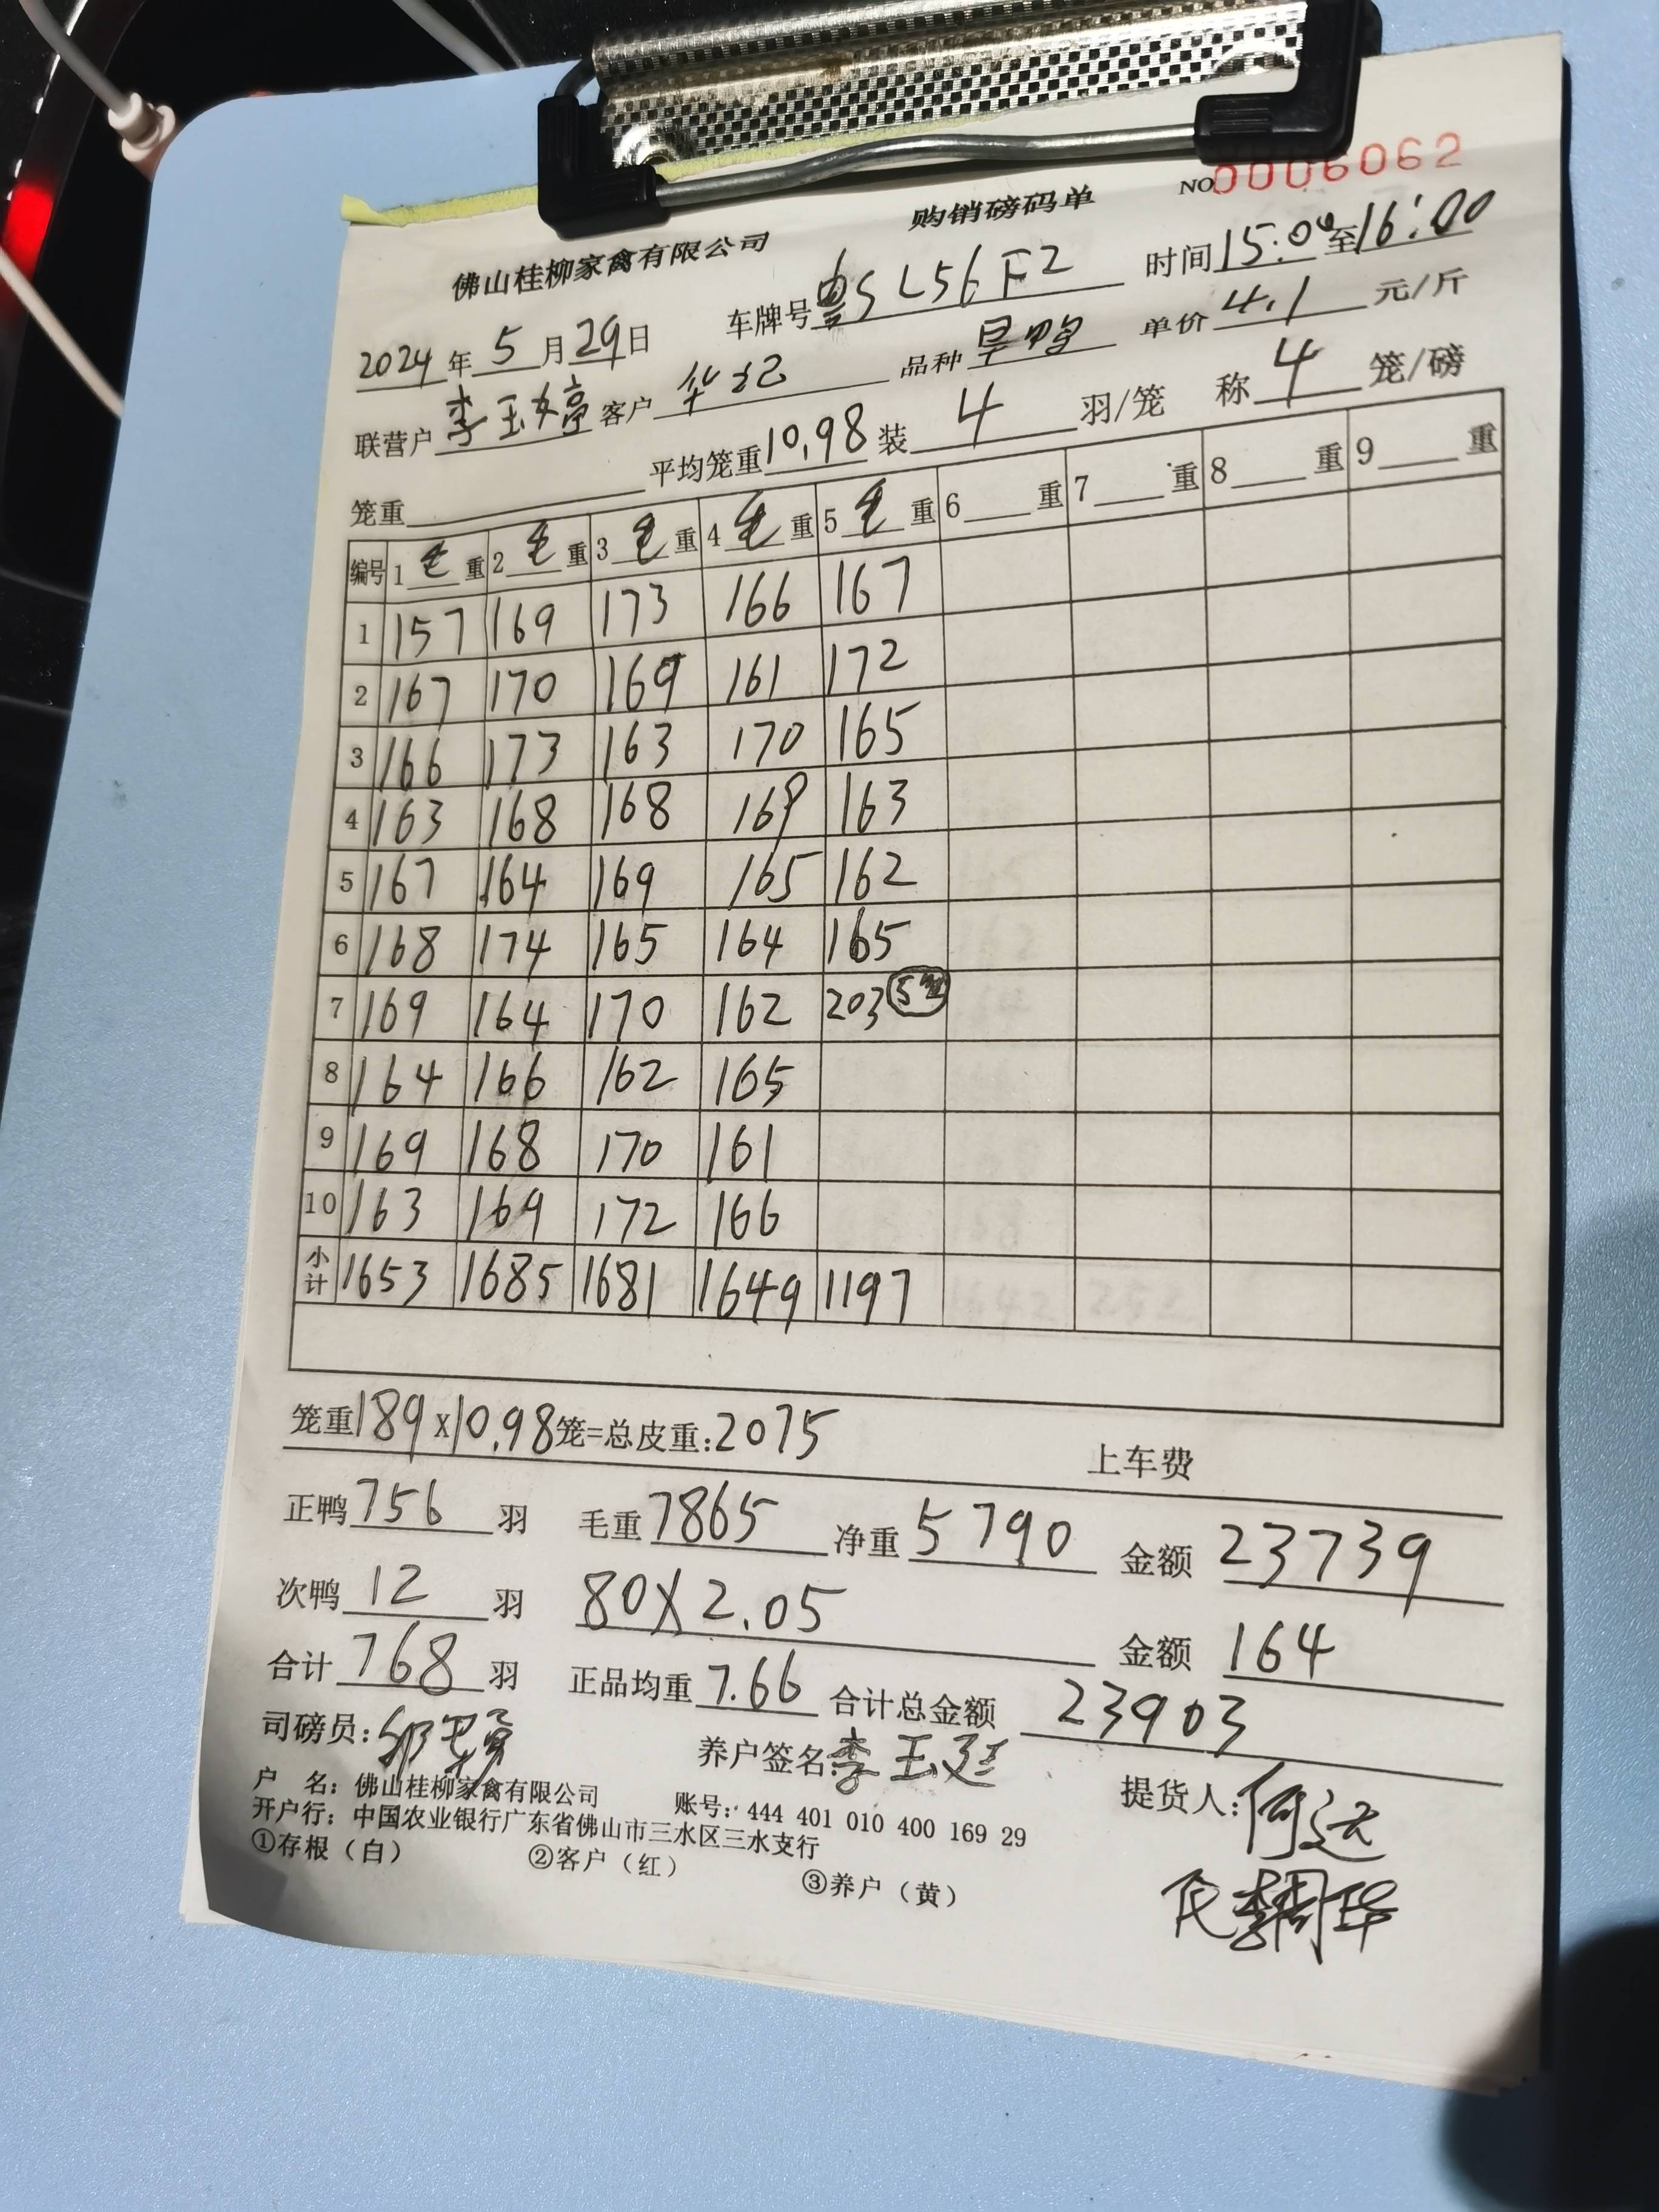 佛山桂柳家禽有限公司 购销磅码单 NO 0006062
2024年5月29日 车牌号 SL56F2 时间15:00至16:00
联营户李玉婷 客户华记 品种旱鸭 单价4.1元/斤
笼重 平均笼重10.98 装4羽/笼 称4笼/磅
编号 1毛重 2毛重 3毛重 4毛重 5毛重 6重 7重 8重 9重
1 157 169 173 166 167
2 167 170 169 161 172
3 166 173 163 170 165
4 163 168 168 169 163
5 167 164 169 165 162
6 168 174 165 164 165
7 169 164 170 162 203 5笼
8 164 166 162 165
9 169 168 170 161
10 163 169 172 166
小计 1653 1685 1681 1649 1197
笼重189x10.98笼=总皮重:2075 上车费
正鸭756羽 毛重7865 净重5790 金额23739
次鸭12羽 80X2.05 金额164
合计768羽 正品均重7.66 合计总金额23903
司磅员: 养户签名:李玉廷 提货人:何远
户 名:佛山桂柳家禽有限公司 账号:444 401 010 400 169 29
开户行:中国农业银行广东省佛山市三水区三水支行
①存根(白) ②客户(红) ③养户(黄)